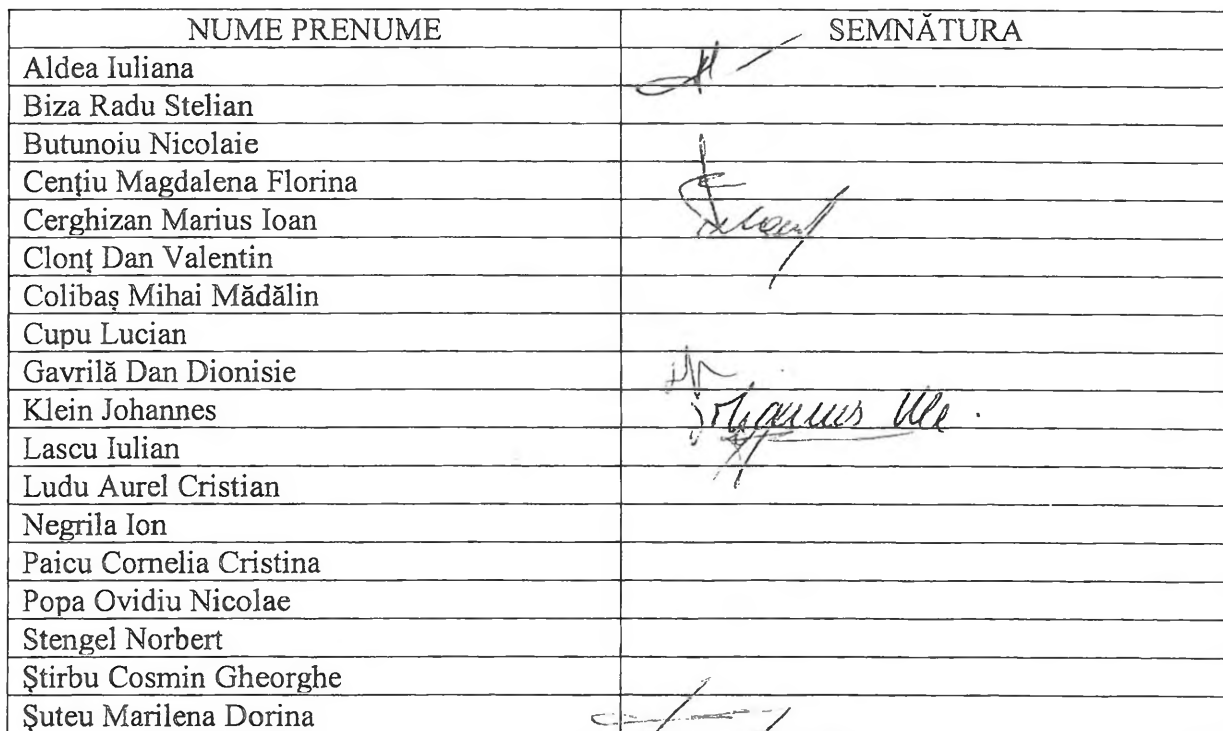 NUME PRENUME SEMNĂTURA
Aldea Iuliana
Biza Radu Stelian
Butunoiu Nicolaie
Cenţiu Magdalena Florina
Cerghizan Marius Ioan
Clonţ Dan Valentin
Colibaş Mihai Mădălin
Cupu Lucian
Gavrilă Dan Dionisie
Klein Johannes
Lascu Iulian
Ludu Aurel Cristian
Negrila Ion
Paicu Cornelia Cristina
Popa Ovidiu Nicolae
Stengel Norbert
Ştirbu Cosmin Gheorghe
Şuteu Marilena Dorina